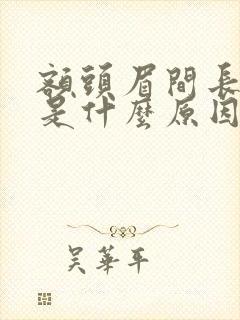 額頭眉間長
是什麼原因
吳華平